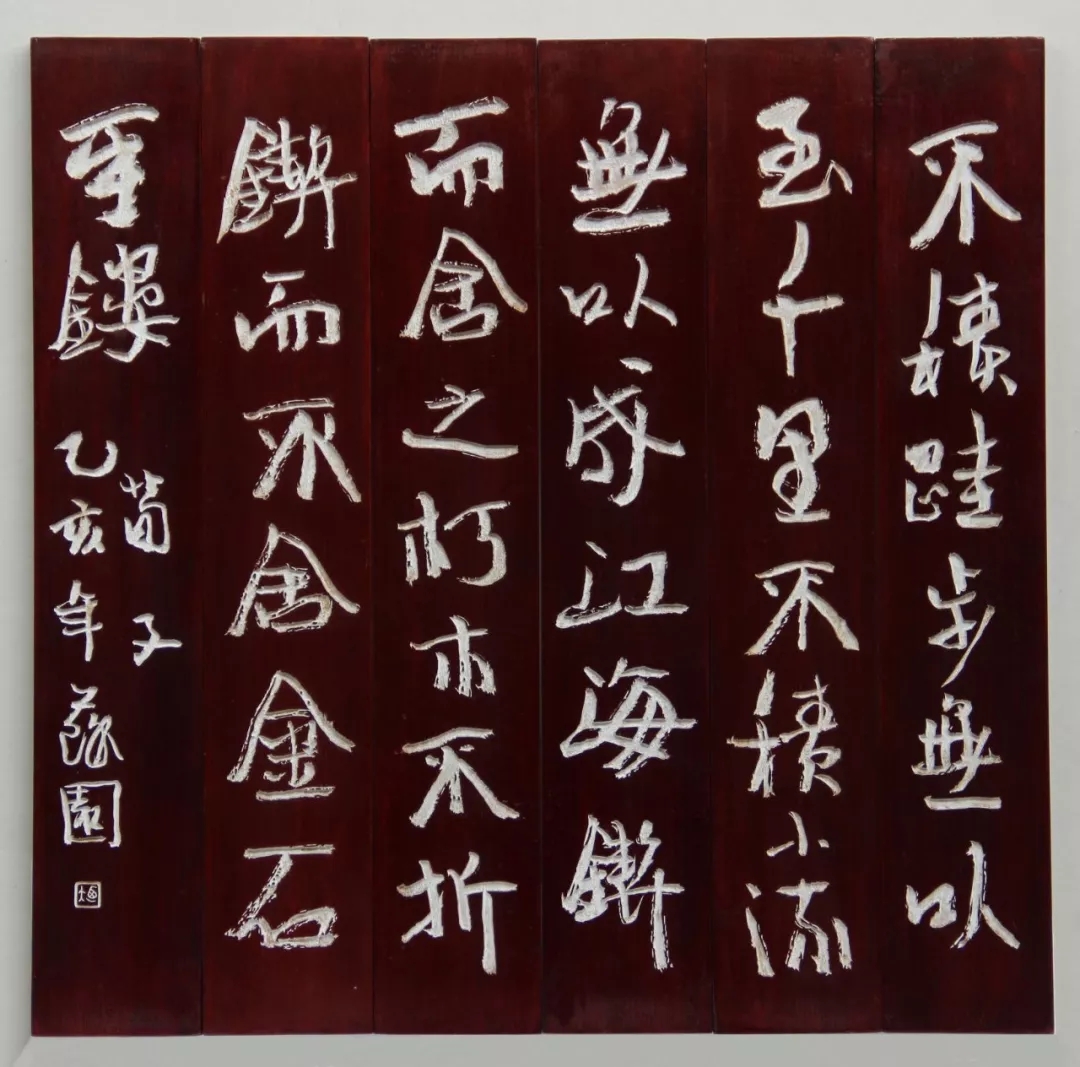 不積跬步無以
至千里不積小流
無以成江海鍥
而舍之朽木不折
鍥而不舍金石
鏤
荀子
乙亥年園